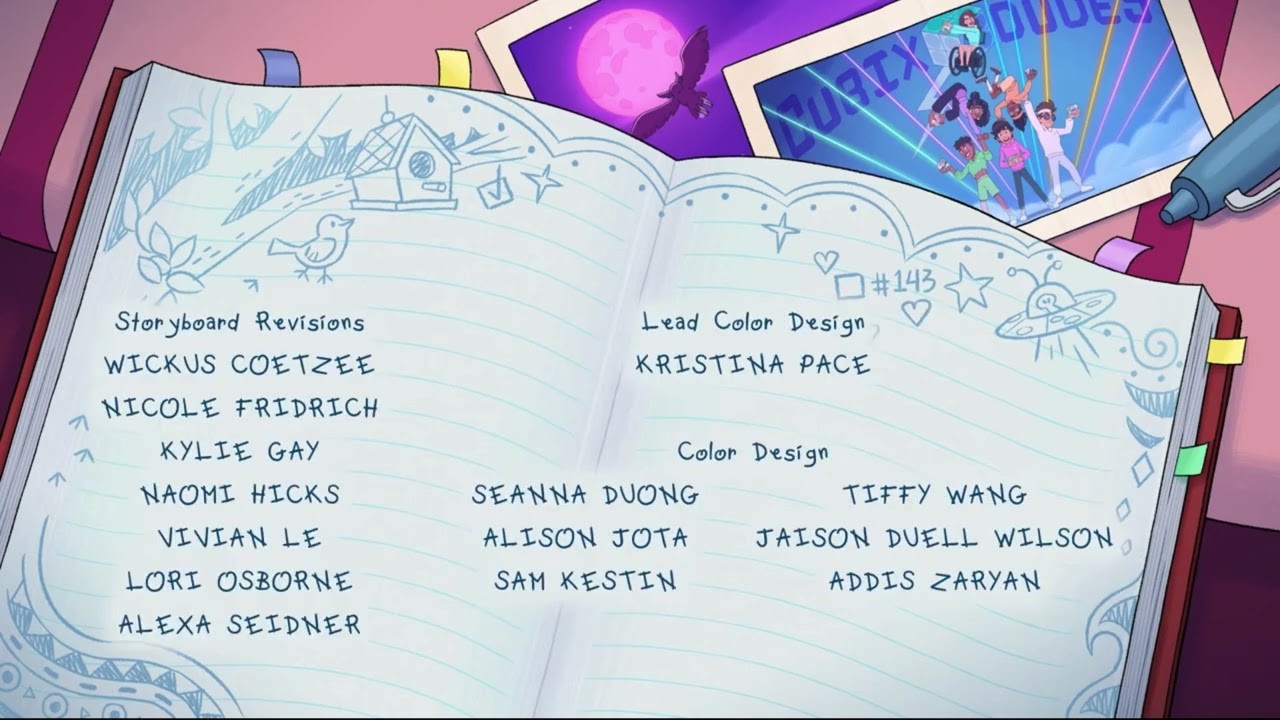 CUBIX DUDES
#143
Storyboard Revisions
WICKUS COETZEE
NICOLE FRIDRICH
KYLIE GAY
NAOMI HICKS
VIVIAN LE
LORI OSBORNE
ALEXA SEIDNER
Lead Color Design
KRISTINA PACE
Color Design
SEANNA DUONG TIFFY WANG
ALISON JOTA JAISON DUELL WILSON
SAM KESTIN ADDIS ZARYAN